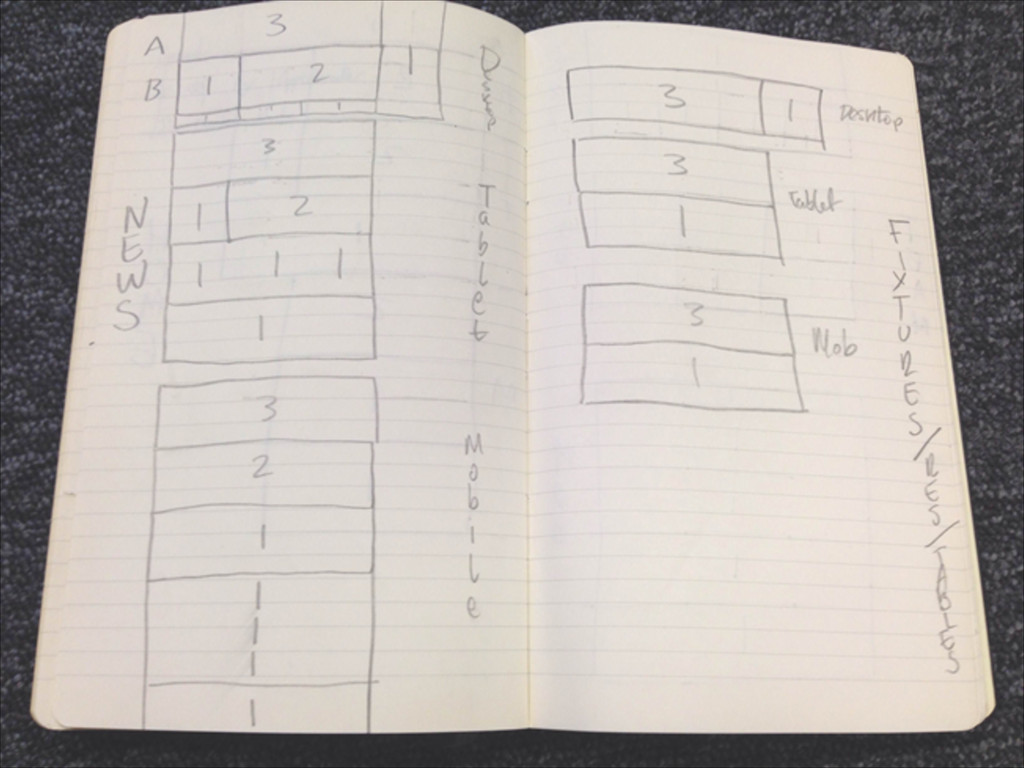 3
A
1
B
1
2
1 1
3
1
2
1 1 1
1
NEWS
Tablet
3
2
1
1
1
1
1
Mobile
3
1
Desktop
3
1
Tablet
3
1
Mob
FIXTURES/RES/TABLES